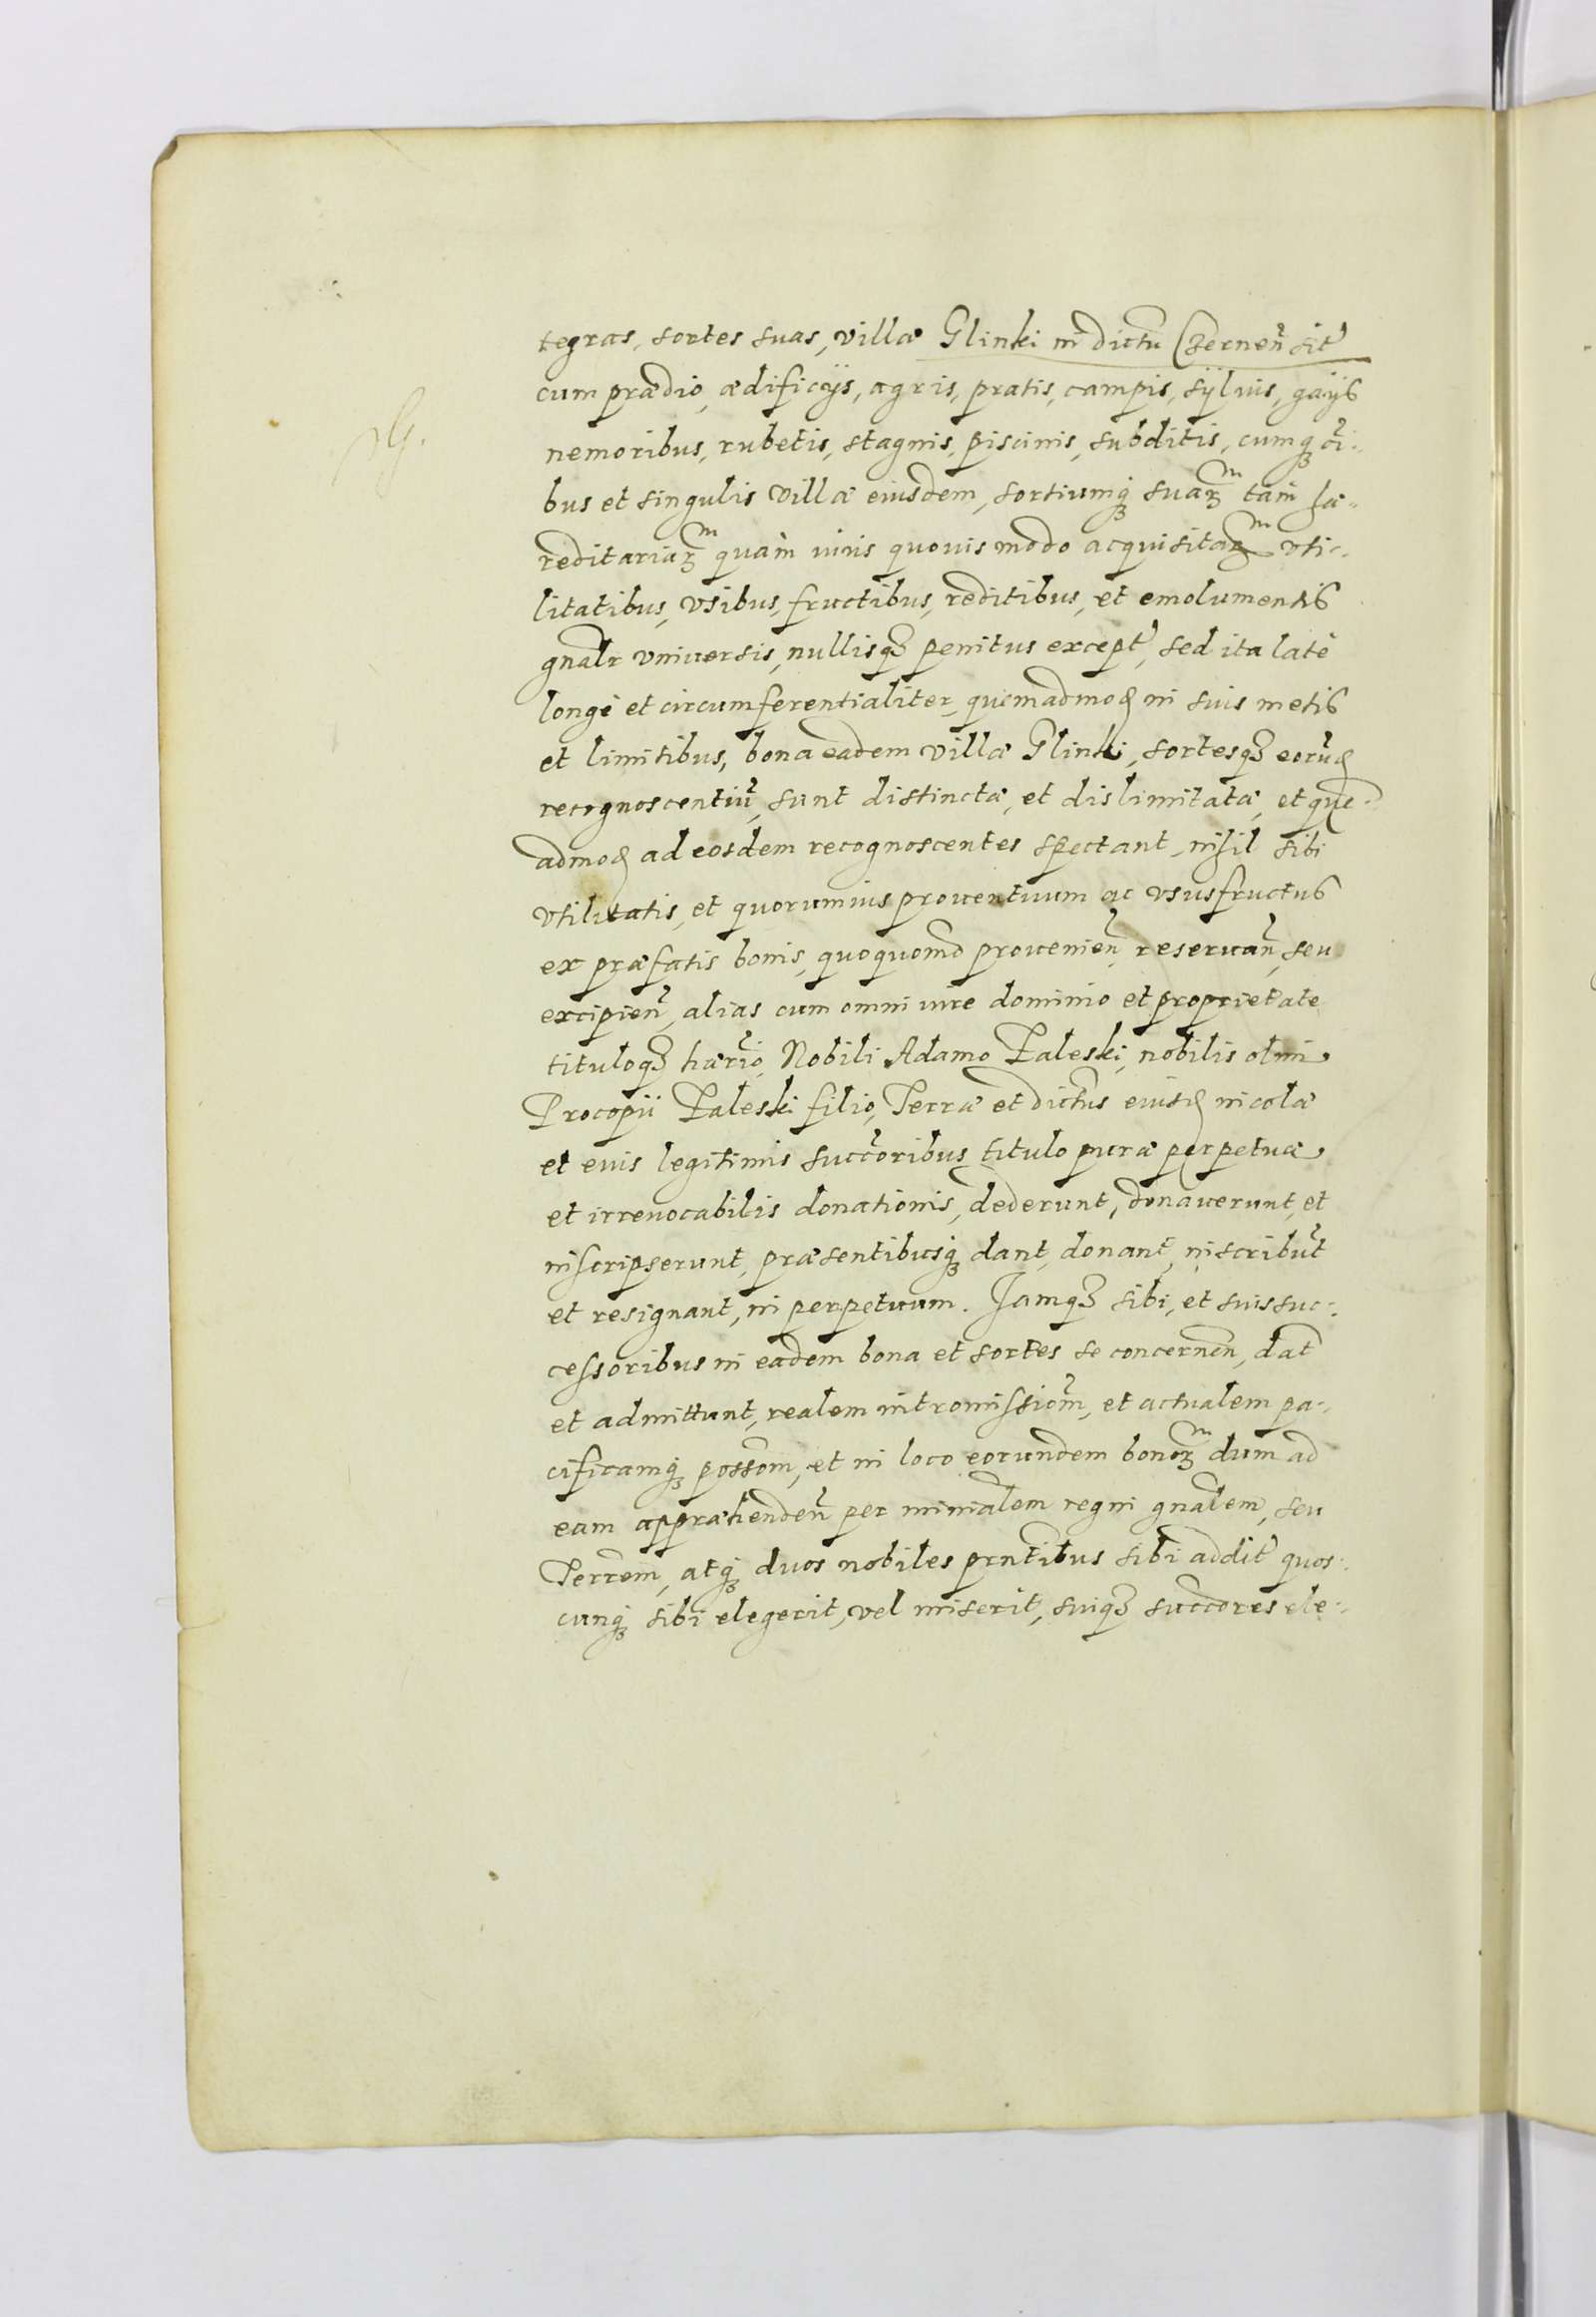 tegras, sortes suas, villæ Glinki in dictu Czernen̄ sit̄
cum prædio, ædificijs, agris, pratis, campis, sÿluis, gaÿs
nemoribus, rubetis, stagnis, piscinis, subditis, cumq́ꝫ oī-
bus et singulis villæ eiusdem, sortiumq́ꝫ suaꝝᵐ tam hæ-
reditariaꝝᵐ quàm iuris quouis modo acquisitaꝝᵐ vti-
litatibus, vsibus, fructibus, reditibus, et emolumentis
gnalr vniuersis, nullisqꝫ penitus except̄, sed ita latè
longè et circumferentialiter, quemadmoꝺ in suis metis
et limitibus, bona eadem villæ Glinki, sortesqꝫ eorūꝺ
recognoscentiū, sunt distinctæ, et dislimitatæ, et que-
admoꝺ ad eosdem recognoscentes spectant, nihil sibi
vtilitatis, et quorumuis prouentuum ac vsusfructus
ex præfatis bonis, quoquomd prouenien̄, reseruan̄, seu
excipien̄, alias cum omni iure dominio et proprietate
tituloqꝫ hærio, Nobili Adamo Zaleski, nobilis olim
Procopii Zaleski filio, Terræ et dictus eiusꝺ incolæ
et euis legitimis succoribus, titulo puræ perpetuæ
et irreuocabilis donationis, dederunt, donauerunt, et
inscripserunt, præsentibusq́ꝫ dant, donant, inscribūt
et resignant, in perpetuum. Jamqꝫ sibi, et suis suc-
cessoribus in eadem bona et sortes se concernen, dat̄
et admittunt, realem intromissiom̄, et actualem pa-
cificamq́ꝫ possom̄, et in loco eorundem bonoꝝᵐ dum ad
eam appræhenden̄ per minialem regni gnalem, seu
Terrem, atq́ꝫ duos nobiles prntibus sibi addit̄ quos-
cunq́ꝫ sibi elegerit, vel miserit, suiqꝫ succores ele-